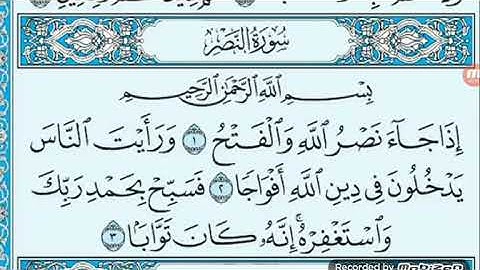 سُورَةُ النَّصْرِ
بِسْمِ اللَّهِ الرَّحْمَٰنِ الرَّحِيمِ
إِذَا جَآءَ نَصْرُ اللَّهِ وَالْفَتْحُ ١ وَرَأَيْتَ النَّاسَ
يَدْخُلُونَ فِى دِينِ اللَّهِ أَفْوَاجًا ٢ فَسَبِّحْ بِحَمْدِ رَبِّكَ
وَاسْتَغْفِرْهُ ۚ إِنَّهُۥ كَانَ تَوَّابًۢا ٣
Recorded by